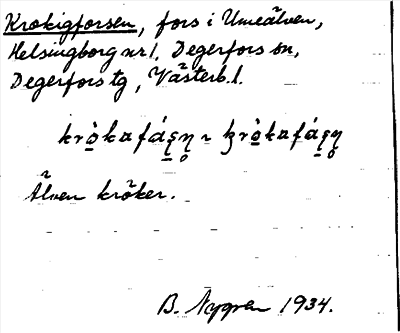 Krokigforsen, fors i Umeälven,
Helsingborg nr 1, Degerfors sn,
Degerfors tg, Västerb. l.
Älven kröker.
B. Nygren 1934.